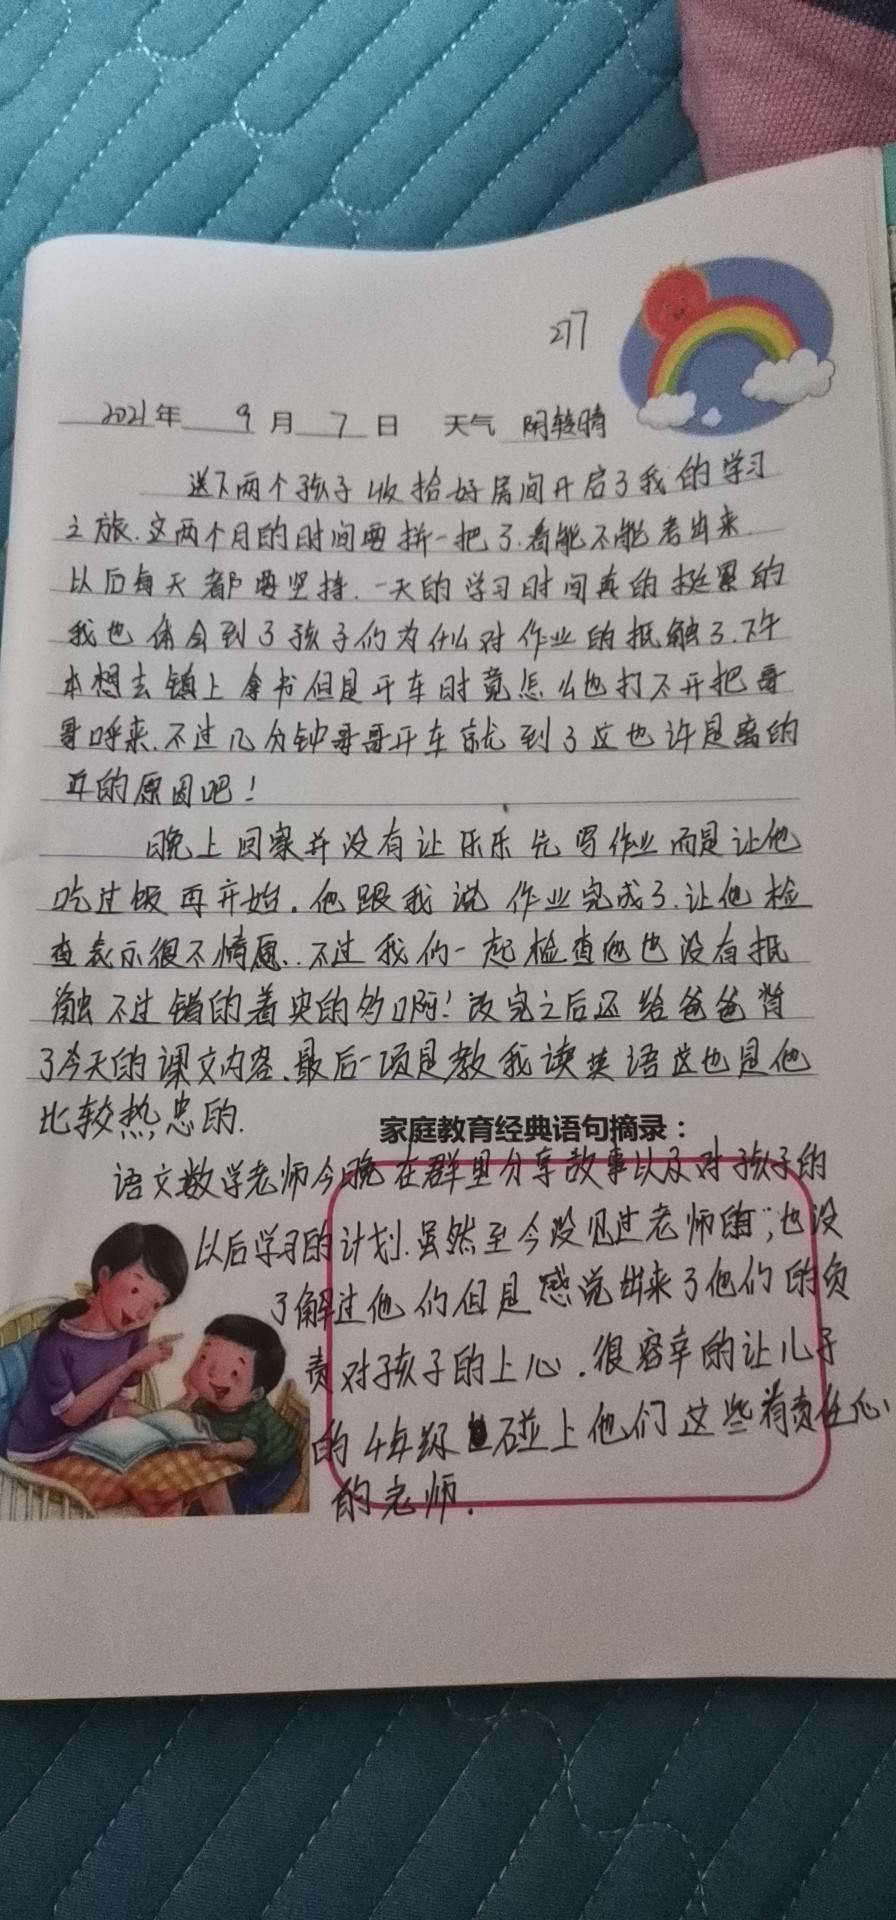 277
2021年 9月 7日 天气 阴转晴
送下两个孩子收拾好房间开启了我的学习
之旅.这两个月的时间要拼一把了.看能不能考出来.
以后每天都要坚持.一天的学习时间真的挺累的
我也体会到了孩子们为什么对作业的抵触了.下午
本想去镇上拿书但是开车时竟怎么也打不开把哥
哥呼来.不过几分钟哥哥开车就到了这也许是离的
近的原因吧!
晚上回家并没有让乐乐先写作业而是让他
吃过饭再开始.他跟我说作业完成了.让他检
查表示很不情愿..不过我们一起检查他也没有抵
触不过错的着实的多啊!改完之后还给爸爸背
了今天的课文内容.最后一项是教我读英语这也是他
比较热忠的.
家庭教育经典语句摘录：
语文数学老师今晚在群里分享故事以及对孩子的
以后学习的计划.虽然至今没见过老师的面;也没
了解过他们但是感觉出来了他们的负
责对孩子的上心.很容幸的让儿子
的4年级碰上他们这些有责任心
的老师.